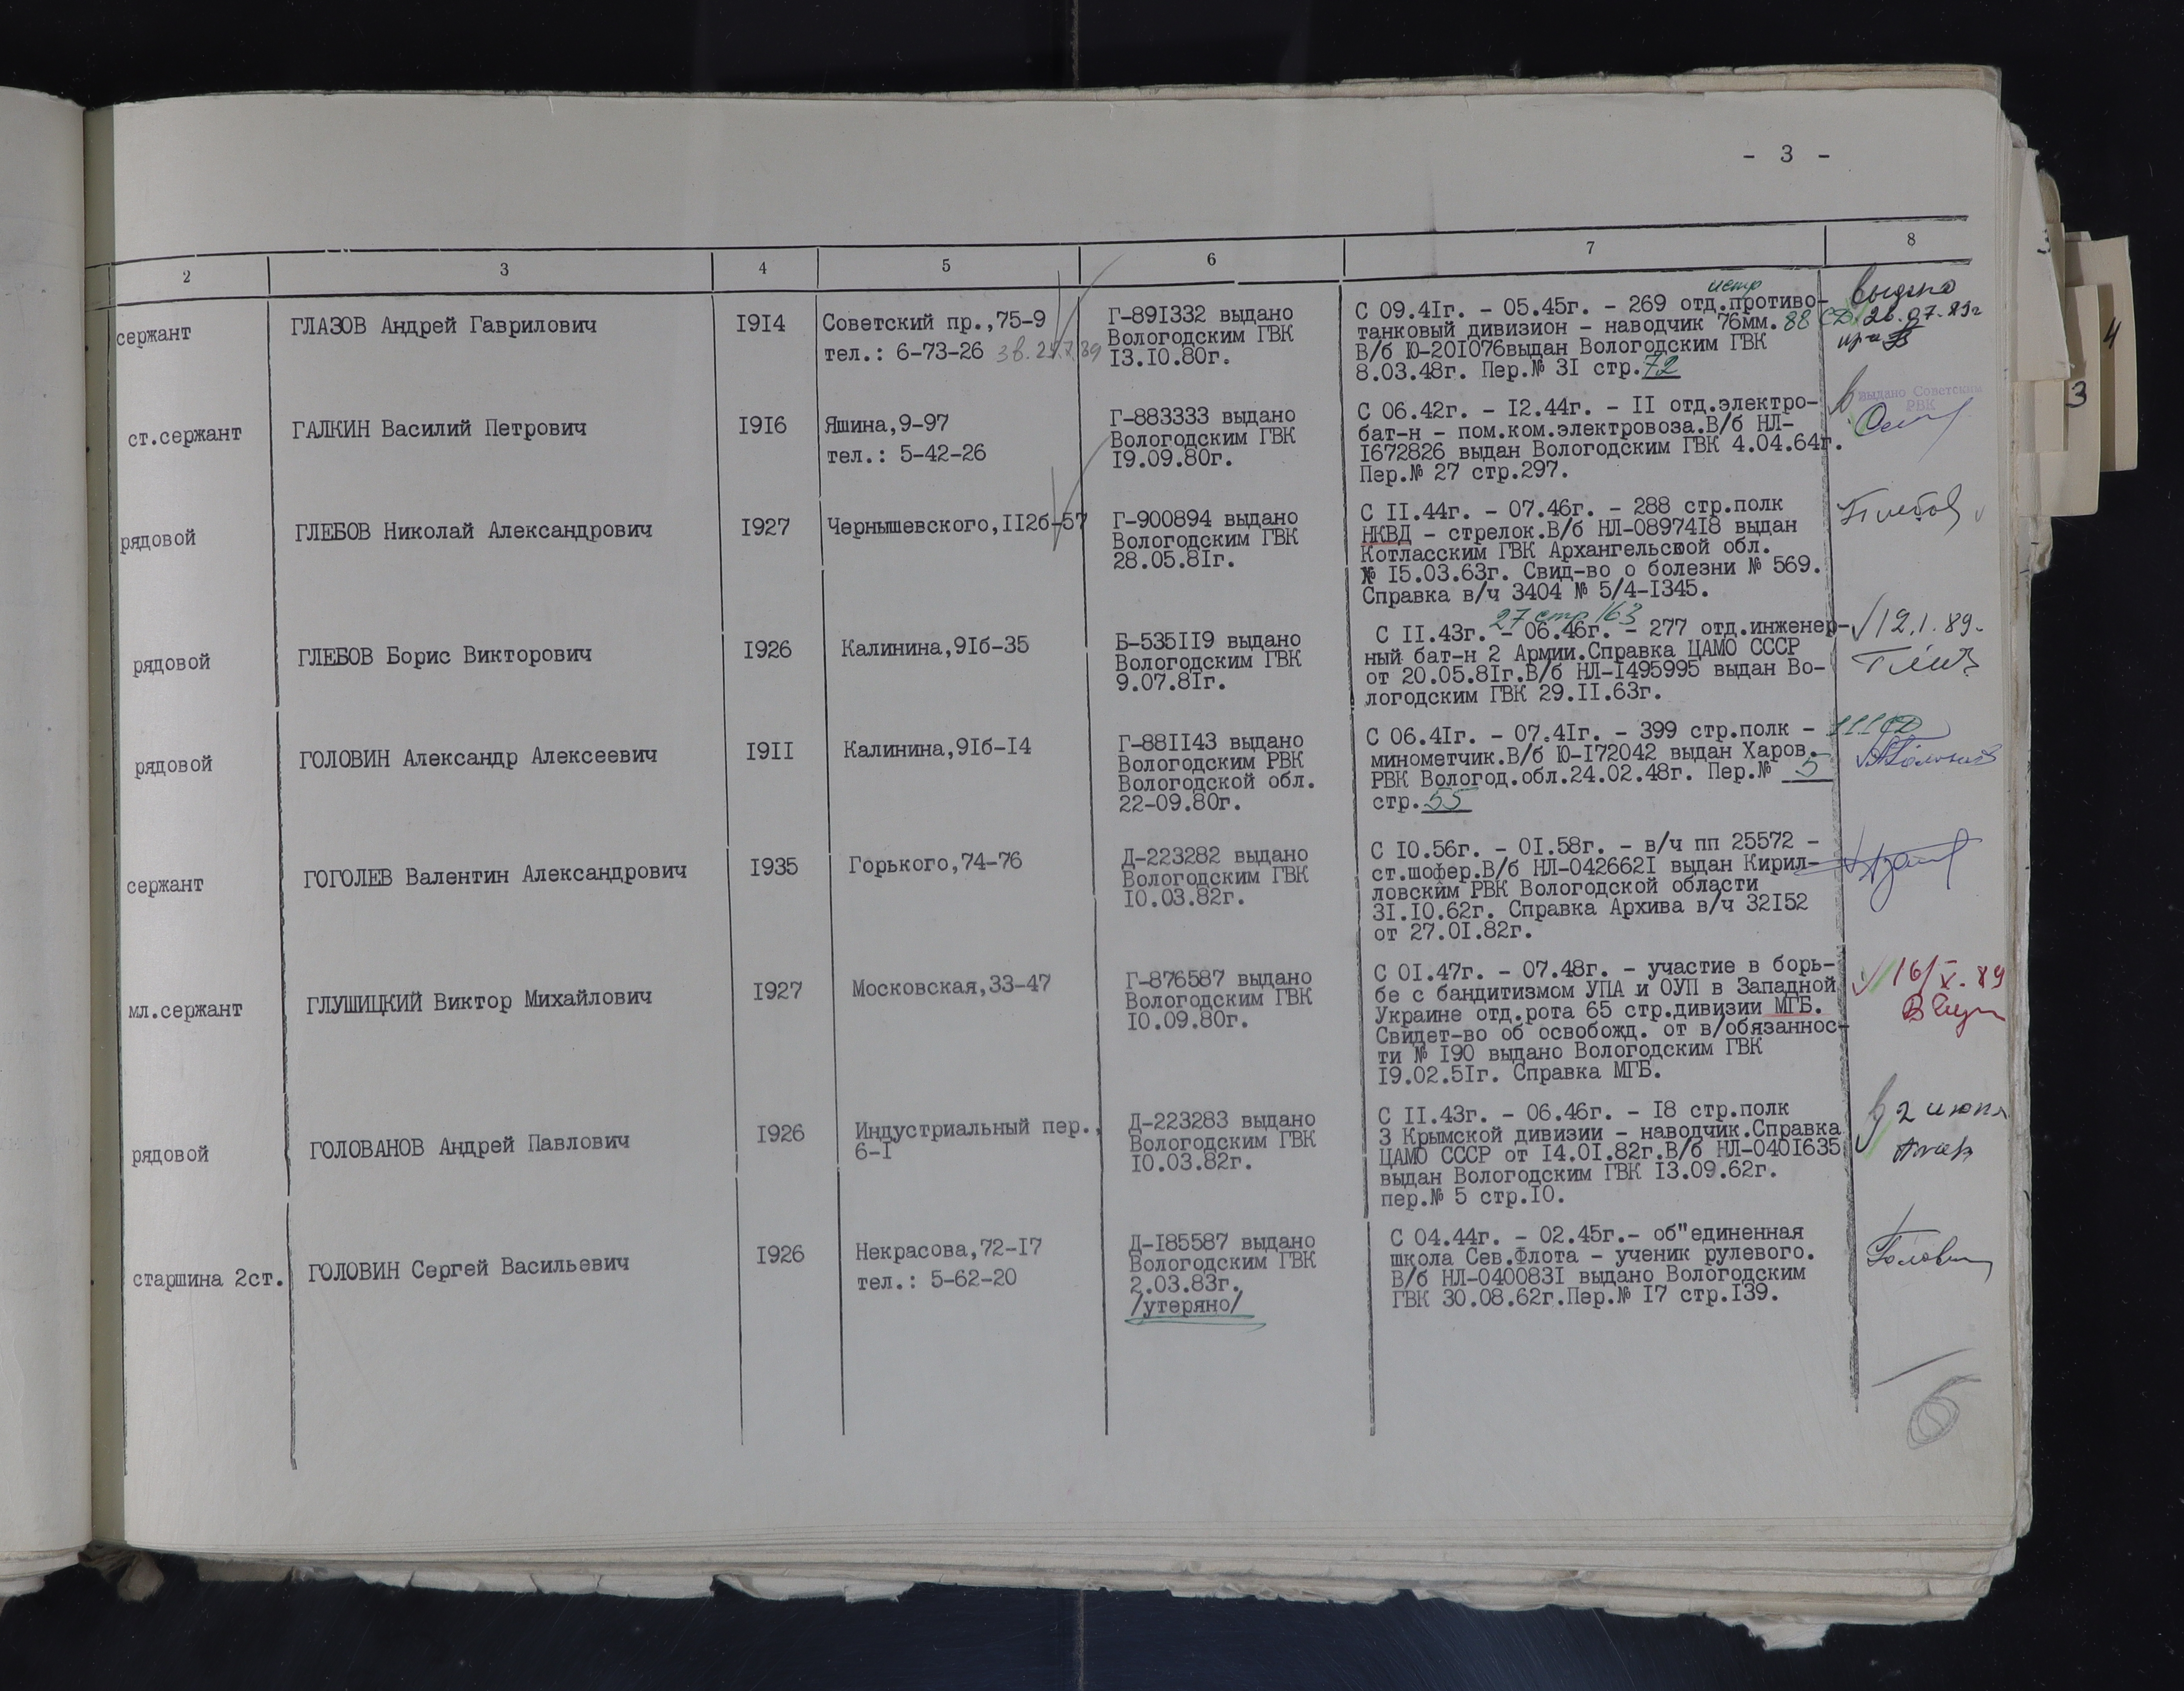 - 3 -
2 3 4 5 6 7 8
сержант
ГЛАЗОВ Андрей Гаврилович
1914
Советский пр.,75-9
тел.: 6-73-26
Г-891332 выдано
Вологодским ГВК
13.10.80г.
истр
С 09.41г. - 05.45г. - 269 отд.противо-
танковый дивизион - наводчик 76мм. 88 СД
В/б Ю-201076выдан Вологодским ГВК
8.03.48г. Пер.№ 31 стр.72
выдано
26.07.89г
ст.сержант
ГАЛКИН Василий Петрович
1916
Яшина,9-97
тел.: 5-42-26
Г-883333 выдано
Вологодским ГВК
19.09.80г.
С 06.42г. - 12.44г. - 11 отд.электро-
бат-н - пом.ком.электровоза.В/б НЛ-
1672826 выдан Вологодским ГВК 4.04.64г.
Пер.№ 27 стр.297.
выдано Советским
РВК
рядовой
ГЛЕБОВ Николай Александрович
1927
Чернышевского,112б-57
Г-900894 выдано
Вологодским ГВК
28.05.81г.
С 11.44г. - 07.46г. - 288 стр.полк
НКВД - стрелок.В/б НЛ-0897418 выдан
Котласским ГВК Архангельской обл.
№ 15.03.63г. Свид-во о болезни № 569.
Справка в/ч 3404 № 5/4-1345.
Глебов
рядовой
ГЛЕБОВ Борис Викторович
1926
Калинина,91б-35
Б-535119 выдано
Вологодским ГВК
9.07.81г.
27 стр 163
С 11.43г. - 06.46г. - 277 отд.инженер-
ный бат-н 2 Армии.Справка ЦАМО СССР
от 20.05.81г.В/б НЛ-1495995 выдан Во-
логодским ГВК 29.11.63г.
12.1.89.
рядовой
ГОЛОВИН Александр Алексеевич
1911
Калинина,91б-14
Г-881143 выдано
Вологодским РВК
Вологодской обл.
22-09.80г.
С 06.41г. - 07.41г. - 399 стр.полк - 111СД
минометчик.В/б Ю-172042 выдан Харов.
РВК Вологод.обл.24.02.48г. Пер.№ 5
стр.55
сержант
ГОГОЛЕВ Валентин Александрович
1935
Горького,74-76
Д-223282 выдано
Вологодским ГВК
10.03.82г.
С 10.56г. - 01.58г. - в/ч пп 25572 -
ст.шофер.В/б НЛ-0426621 выдан Кирил-
ловским РВК Вологодской области
31.10.62г. Справка Архива в/ч 32152
от 27.01.82г.
мл.сержант
ГЛУШИЦКИЙ Виктор Михайлович
1927
Московская,33-47
Г-876587 выдано
Вологодским ГВК
10.09.80г.
С 01.47г. - 07.48г. - участие в борь-
бе с бандитизмом УПА и ОУП в Западной
Украине отд.рота 65 стр.дивизии МГБ.
Свидет-во об освобожд. от в/обязаннос-
ти № 190 выдано Вологодским ГВК
19.02.51г. Справка МГБ.
16/X.89
рядовой
ГОЛОВАНОВ Андрей Павлович
1926
Индустриальный пер.,
6-1
Д-223283 выдано
Вологодским ГВК
10.03.82г.
С 11.43г. - 06.46г. - 18 стр.полк
3 Крымской дивизии - наводчик.Справка
ЦАМО СССР от 14.01.82г.В/б НЛ-0401635
выдан Вологодским ГВК 13.09.62г.
пер.№ 5 стр.10.
2 июня
старшина 2ст.
ГОЛОВИН Сергей Васильевич
1926
Некрасова,72-17
тел.: 5-62-20
Д-185587 выдано
Вологодским ГВК
2.03.83г.
/утеряно/
С 04.44г. - 02.45г.- об"единенная
школа Сев.Флота - ученик рулевого.
В/б НЛ-0400831 выдано Вологодским
ГВК 30.08.62г.Пер.№ 17 стр.139.
Головин
6
4
3